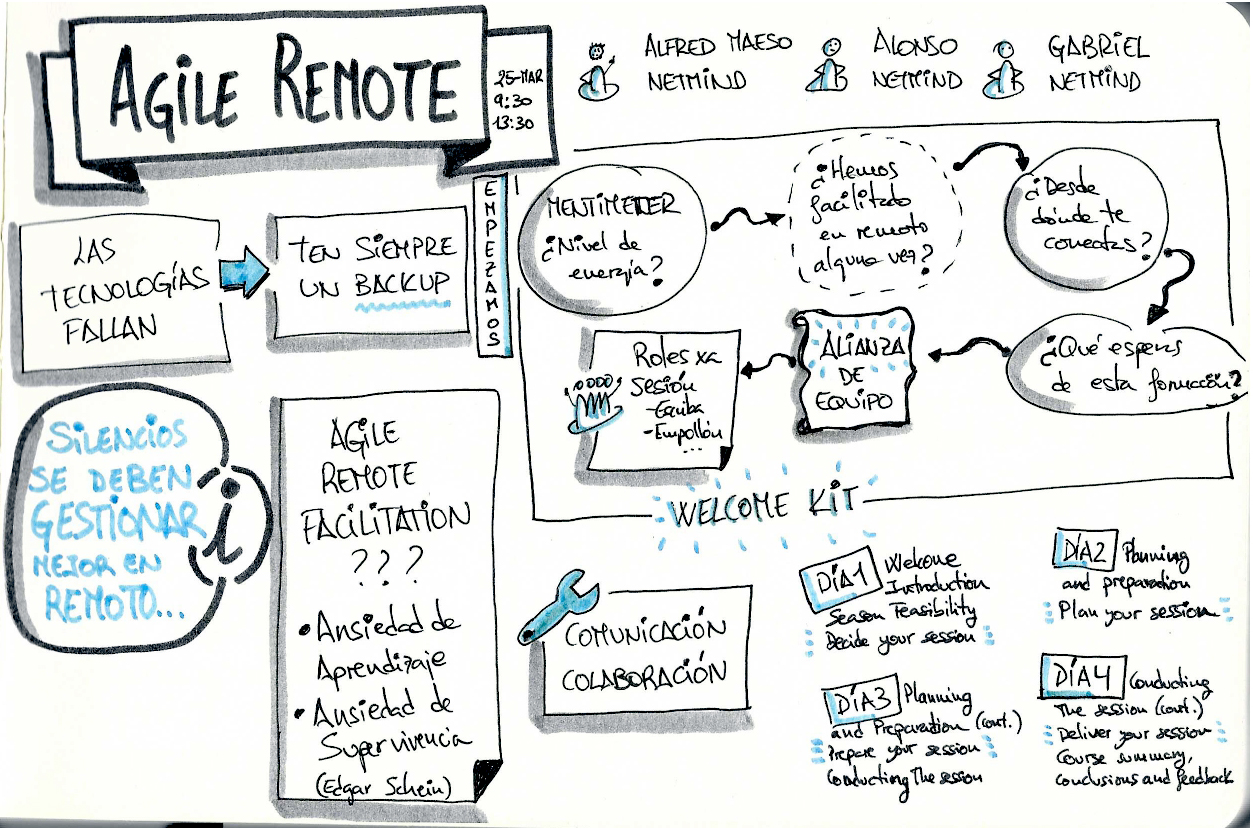 AGILE REMOTE
25-MAR
9:30
13:30
ALFRED MAESO
NETMIND
ALONSO
NETMIND
GABRIEL
NETMIND
LAS
TECNOLOGÍAS
FALLAN
TEN SIEMPRE
UN BACKUP
EMPEZAMOS
MENTIMETER
¿Nivel de
energía?
¿Hemos
facilitado
en remoto
alguna vez?
¿Desde
dónde te
conectas?
¿Qué esperas
de esta formación?
ALIANZA
DE
EQUIPO
Roles xa
sesión
-Escriba
-Empollón
...
WELCOME KIT
SILENCIOS
SE DEBEN
GESTIONAR
MEJOR EN
REMOTO...
i
AGILE
REMOTE
FACILITATION
???
• Ansiedad de
Aprendizaje
• Ansiedad de
Supervivencia
(Edgar Schein)
COMUNICACIÓN
COLABORACIÓN
DÍA1 Welcome
Introduction
Season Feasibility
Decide your session
DÍA2 Planning
and preparation
Plan your session
DÍA3 Planning
and Preparation (cont.)
Prepare your session
Conducting The session
DÍA4 Conducting
The session (cont.)
Deliver your session
Course summary,
conclusions and feedback